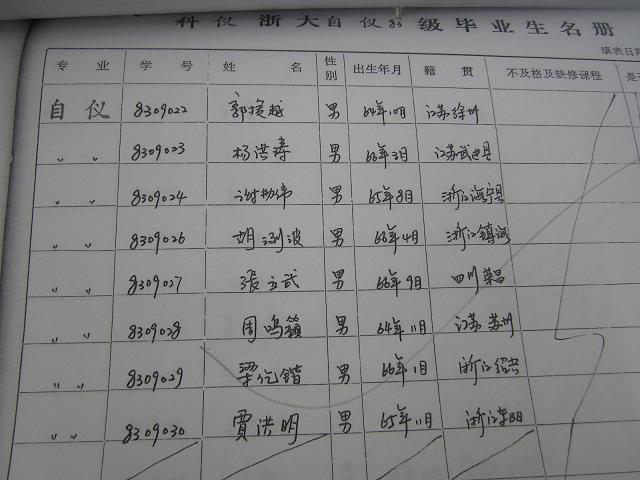 科仪 浙大自仪83级毕业生名册
填表日
专 业 学 号 姓 名 性别 出生年月 籍 贯 不及格及缺修课程
自 仪 8309022 男 64年10月 江苏徐州
〃 〃 8309023 杨洪涛 男 66年3月 江苏武进县
〃 〃 8309024 男 65年8月 浙江海宁县
〃 〃 8309026 胡 波 男 66年4月 浙江镇海
〃 〃 8309027 張立武 男 66年9月 四川荣昌
〃 〃 8309028 周鸣籁 男 64年11月 江苏 苏州
〃 〃 8309029 梁 锴 男 66年1月 浙江绍兴
〃 〃 8309030 賈洪明 男 65年11月 浙江东阳